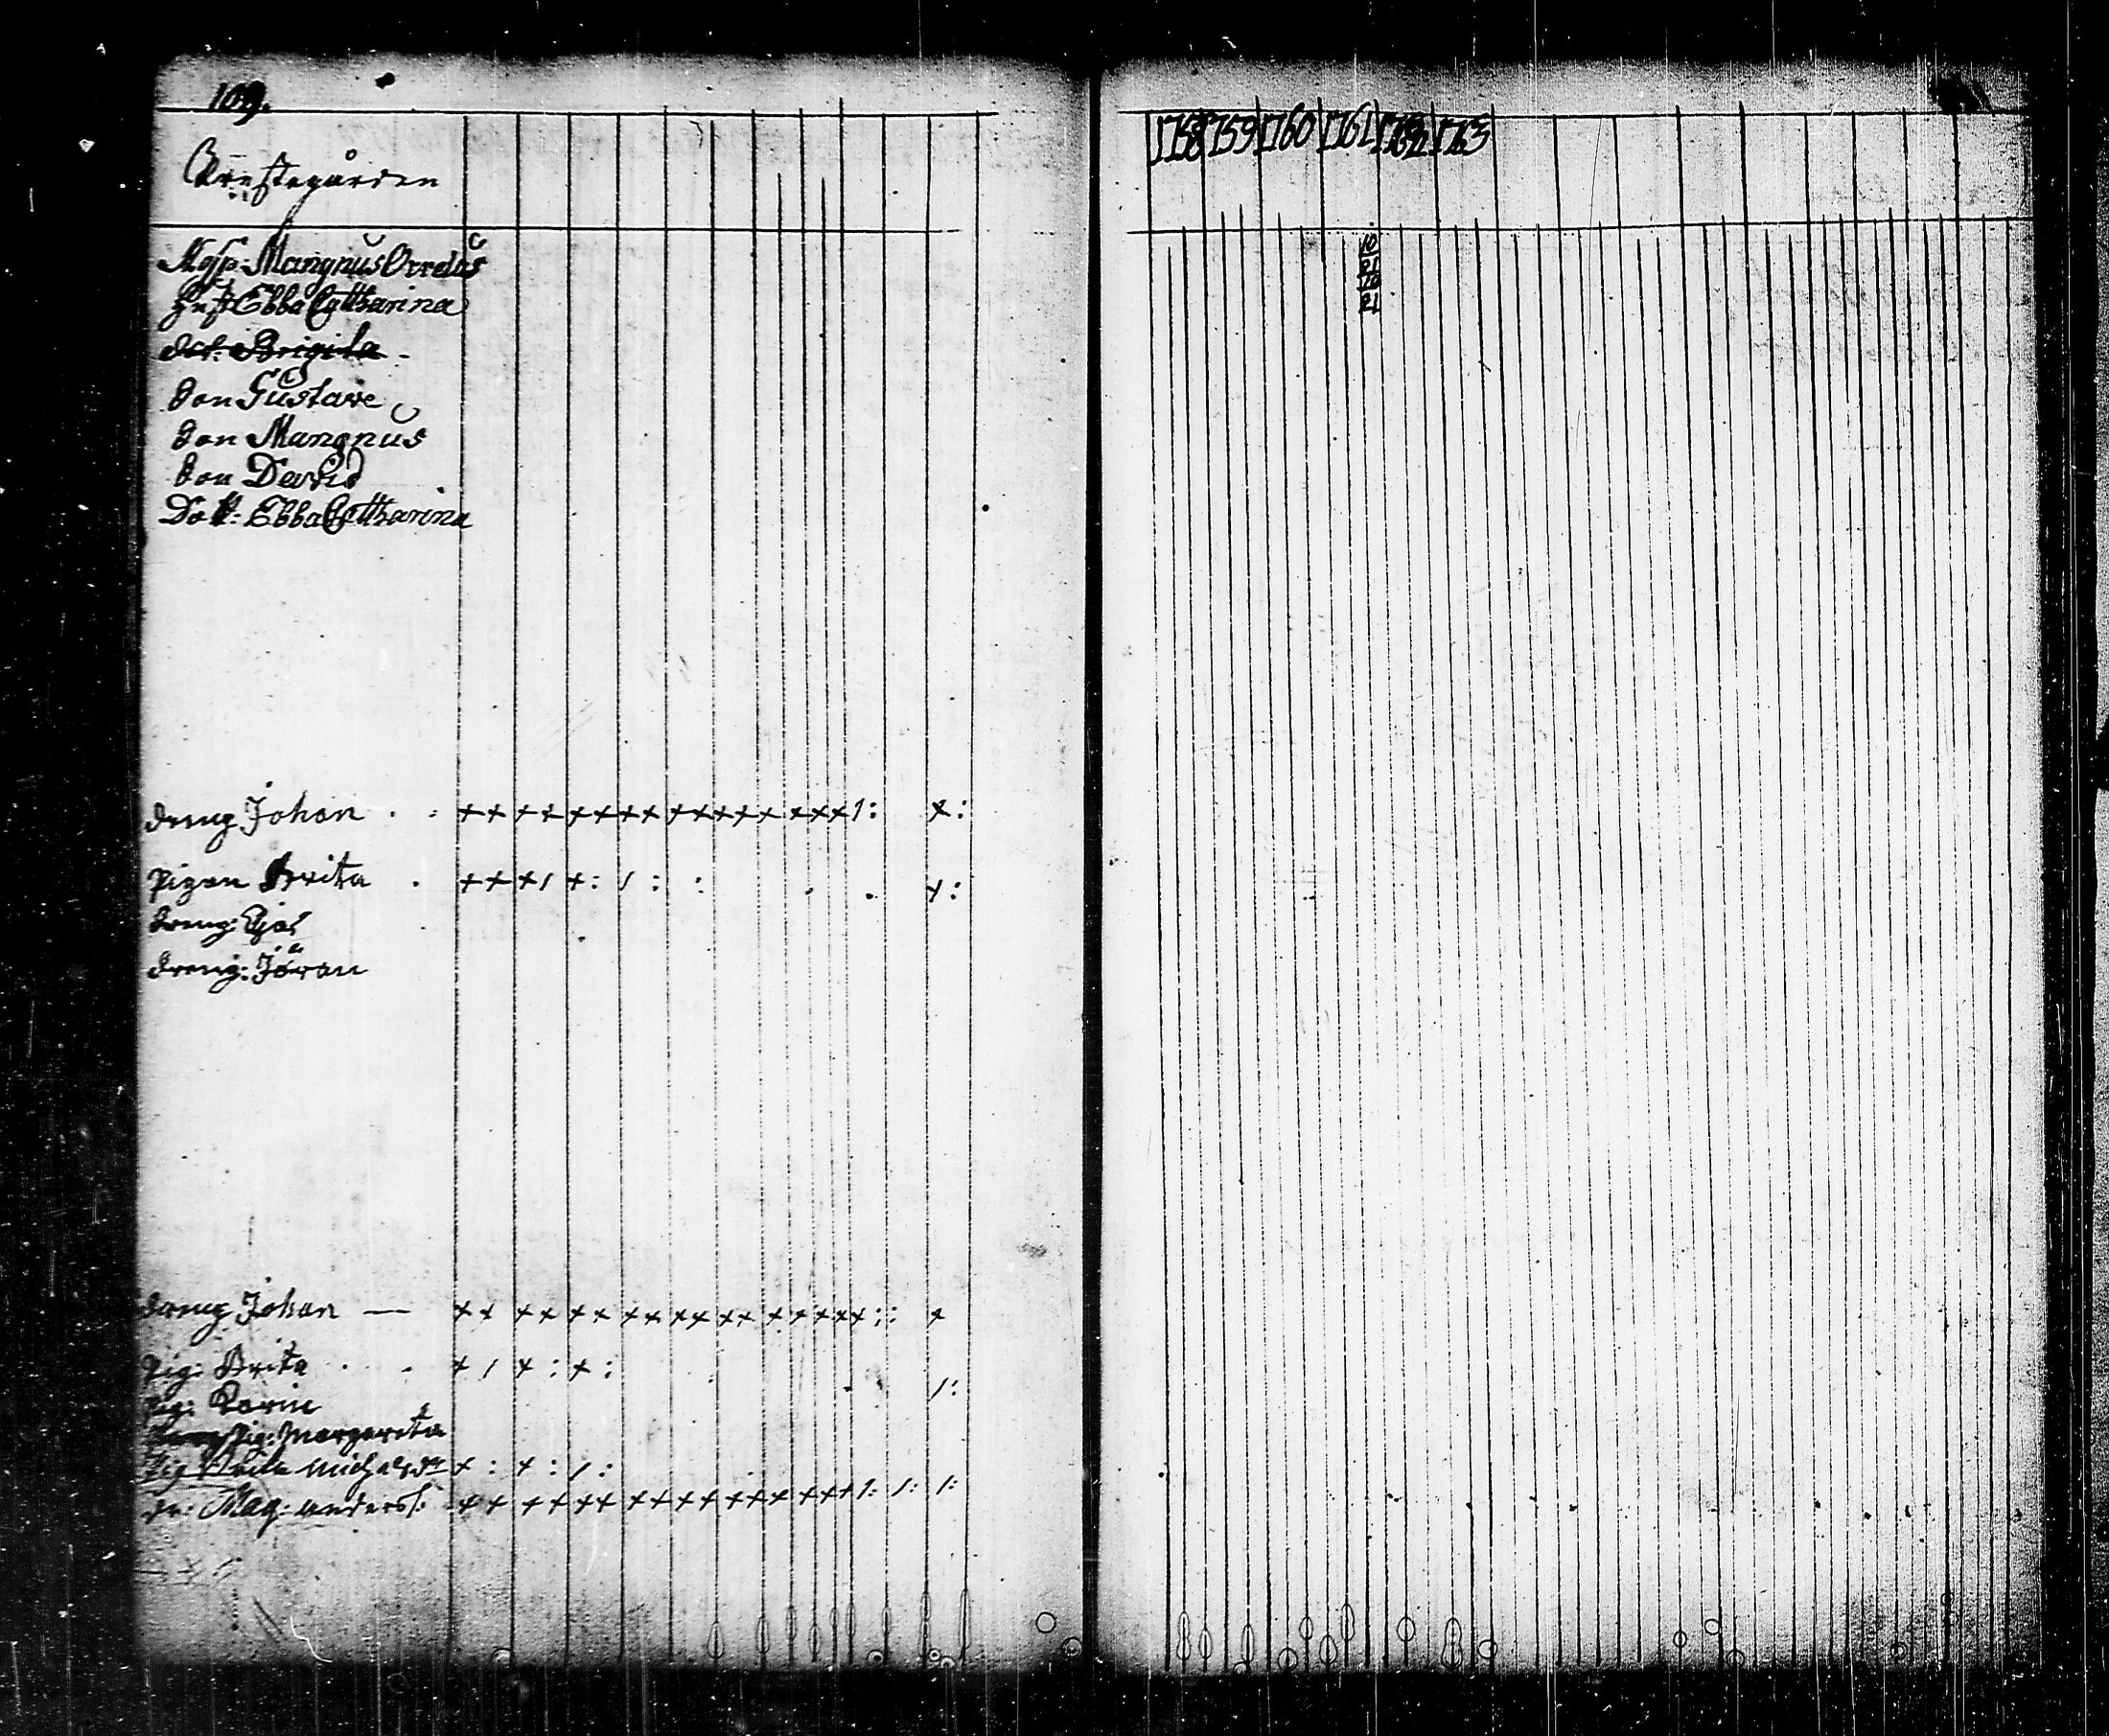 109.
Prestegården
Mangnus Orrelius
Hust: Ebba Catharina
Brigita
Son Gustave
Son Mangnus
Son David
Dott: Ebba Catharina
dreng Johan . . ++ ++ ++ ++ ++ +++ +++ 1: +:
Pigan Brita . ++ +/ +: / : : . . +:
dreng:
dreng: Jöran
dreng Johan — ++ ++ ++ ++ ++ ++ +++++ : : +
Pig: Brita . . + / + : + :
Pig: Karin /:
Pig: Margareta
Pig + : + : / :
dr: Mag: anders: ++ ++ ++ ++ ++ +++ +++ 1: /: /:
1758 1759 1760 1761 1762 1763
10
21
20
21